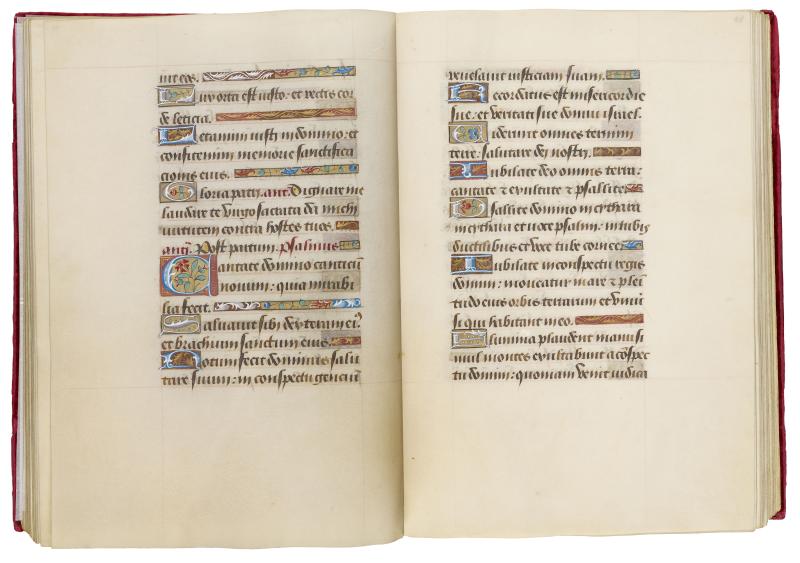 uit eos.
Lux orta est iusto: et rectis cor
de leticia.
Letamini iusti in domino: et
confitemini memorie sanctifica
cionis eius.
Gloria patri. ant. Dignare me
laudare te virgo sacrata da michi
virtutem contra hostes tuos.
ant. Post partum. psalmus
Cantate domino canticū
novum: quia mirabi
lia fecit.
Salvavit sibi dextera eiꝰ
et brachium sanctum eius.
Notum fecit dominus salu
tare suum: in conspectu genciū
revelavit iusticiam suam.
Recordatus est misericordie
sue: et veritati sue domui israel.
Viderunt omnes termini
terre: salutare dei nostri.
Jubilate deo omnis terra:
cantate ⁊ exultate ⁊ psallite
Psallite domino in cythara
in cythara et voce psalmi: in tubis
ductilibus et voce tube cornee.
Jubilate in conspectu regis
domini: moveatur mare ⁊ pleni
tudo eius orbis terrarum et univer
si qui habitant in eo.
Flumina plaudent manu si
mul montes exultabunt a cōspec
tu domini: quoniam venit iudica